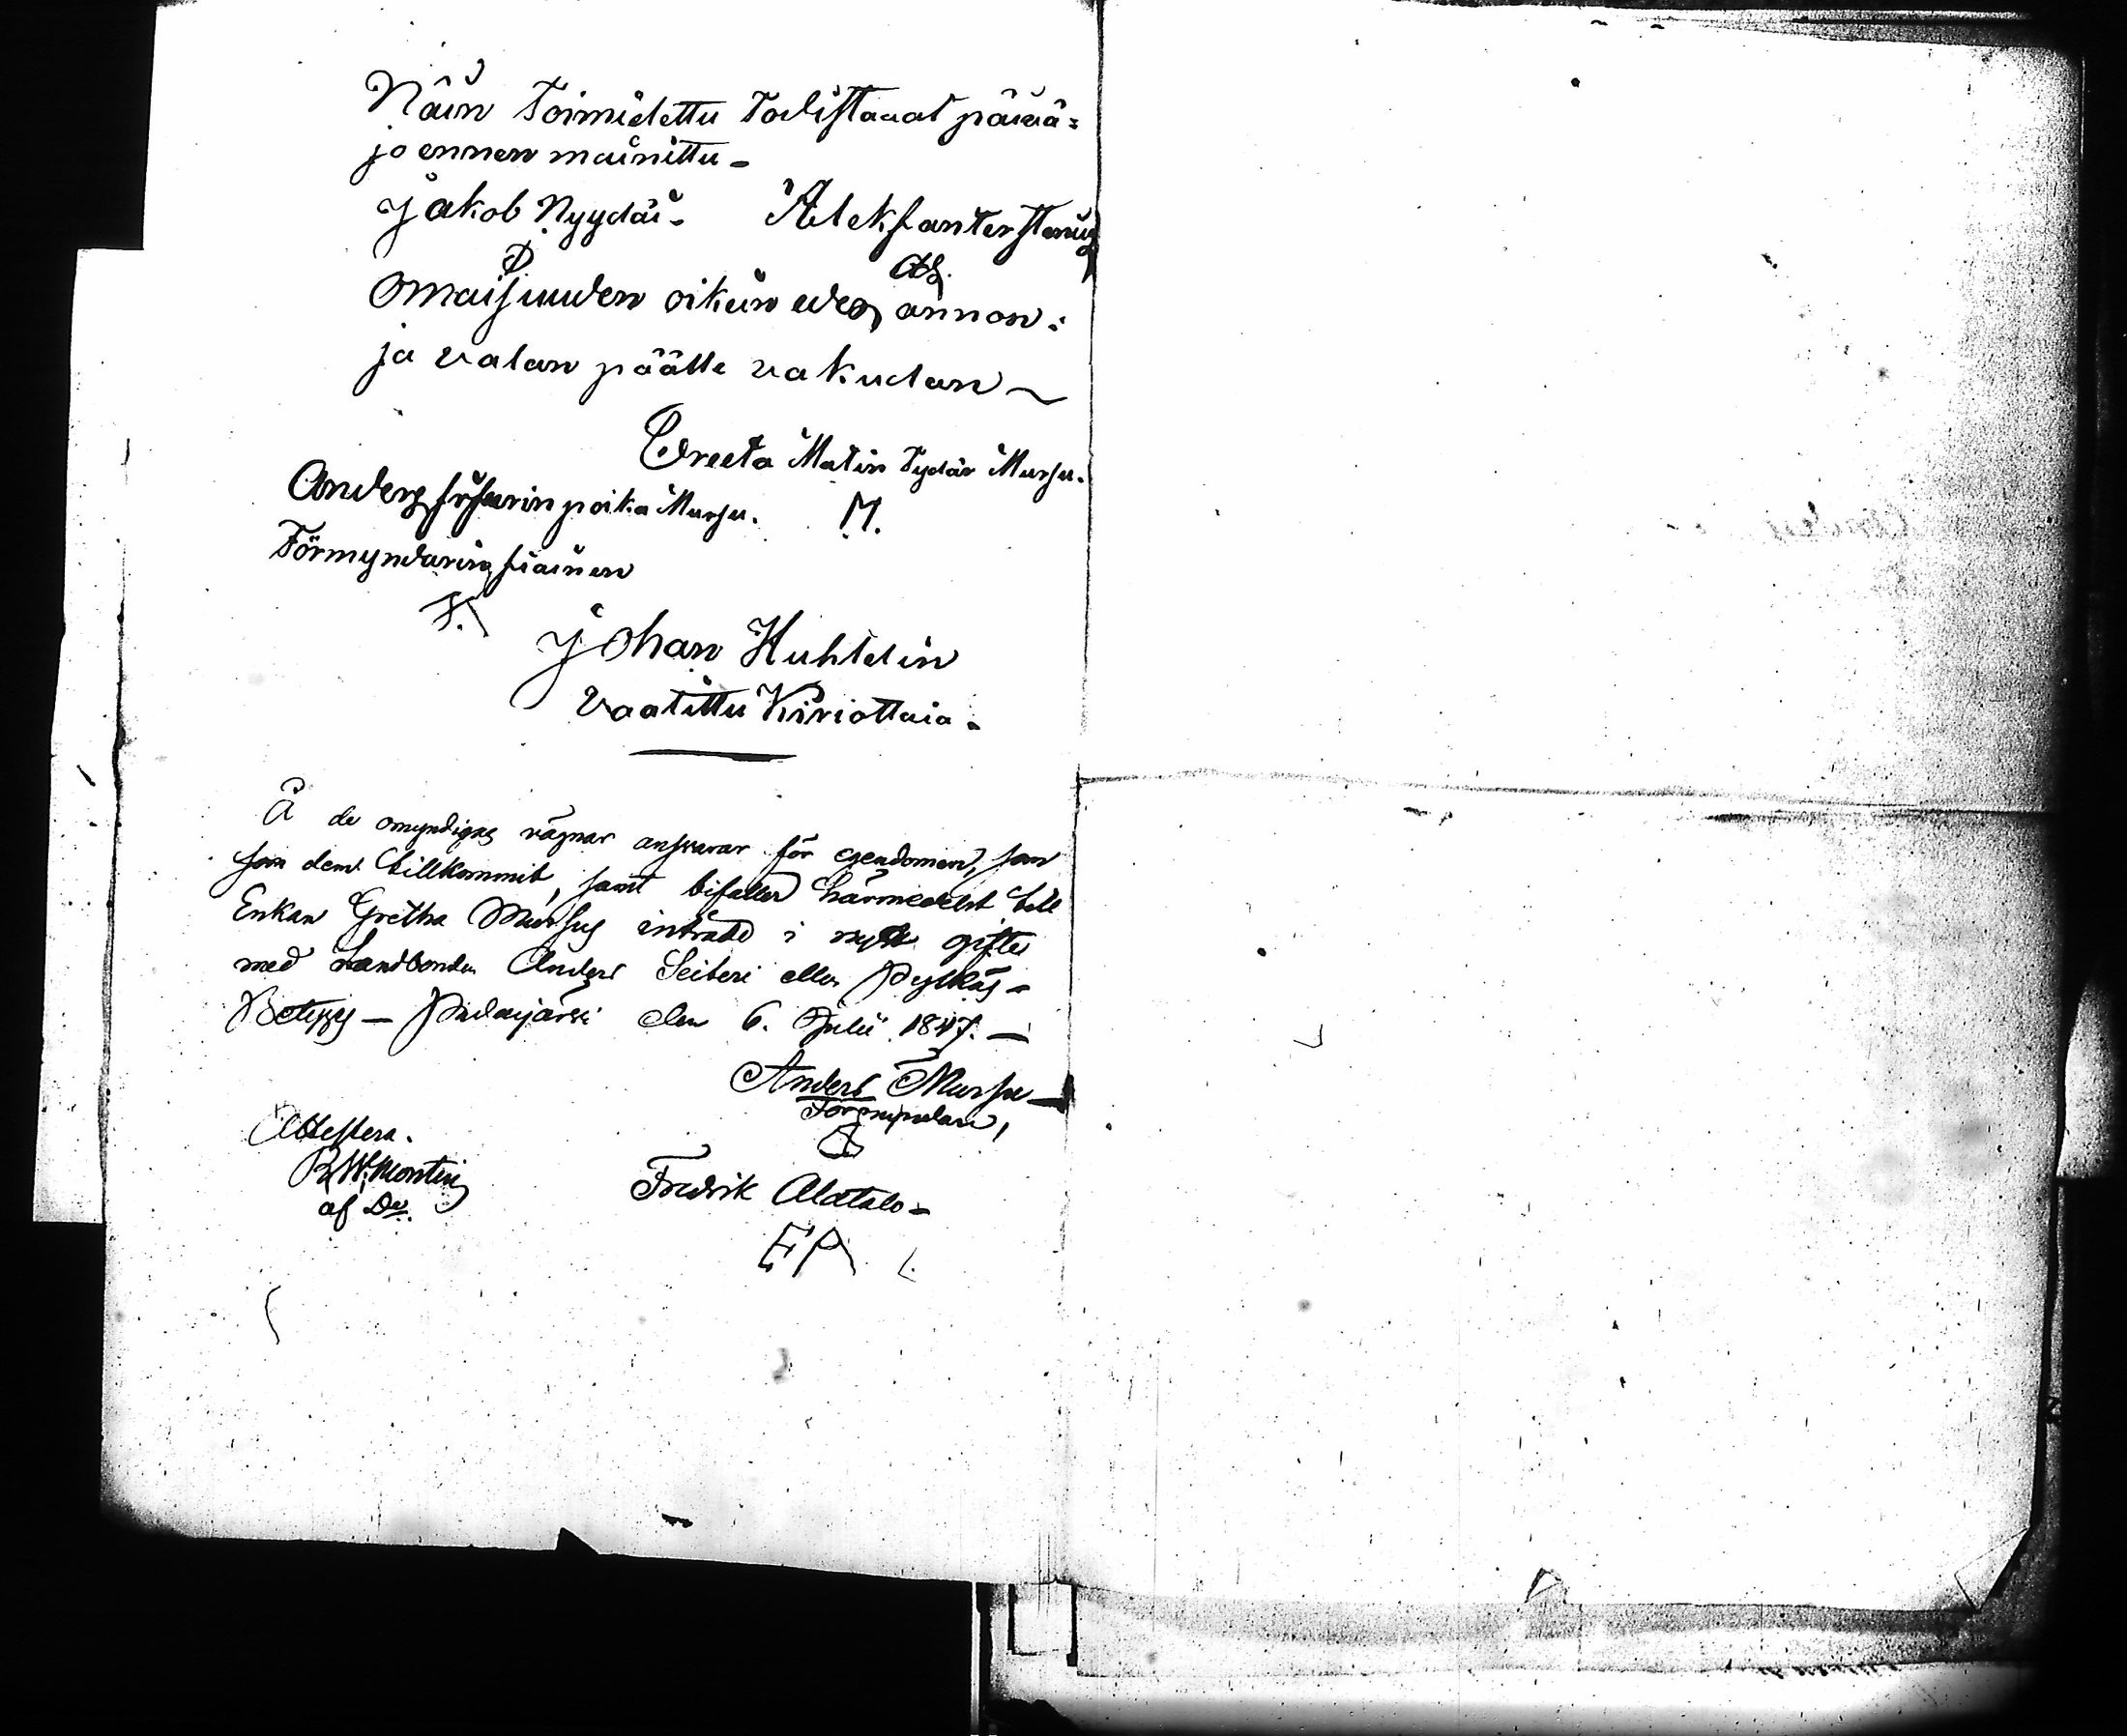 Näin Toimidettu Todistavat päivä=
jo ennen mainittu -
Jakob Nyydäi - Aleksanterstanius
Omaisuuden oikein edes annon:
ja valan päälle vakudan ~
Greeta Matin Tydär Mursu.
Anders iuhanin poika Mursu. M.
Förmyndarin siainen
Johan Huhtelin
vaatittu Kiriottaia.
Å de omyndigas vägnar answarar för egendomen, som
som dem tillkommit, samt bifaller härmedelst till
Enkan Gretha Mursus inträde i nytt gifte
med Landbonden Anders Seiteri eller Pylkäs -
Betygas — Pudasjärvi den 6. Julii 1847. —
Anders Mursu —
Förmyndare,
Attestera.
Fredrik Alatalo -
af
FA